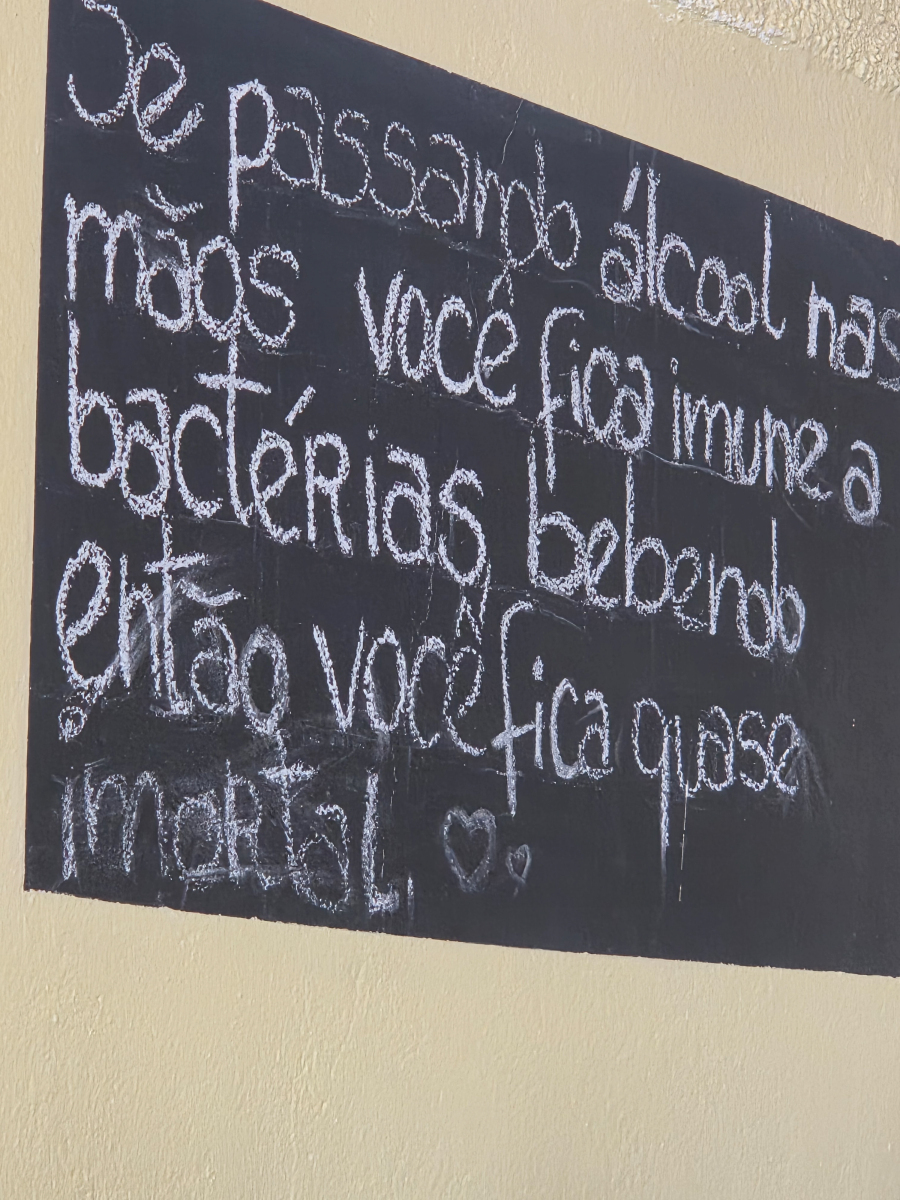 Se passando álcool nas
mãos você fica imune a
bactérias bebendo
então você fica quase
imortal.